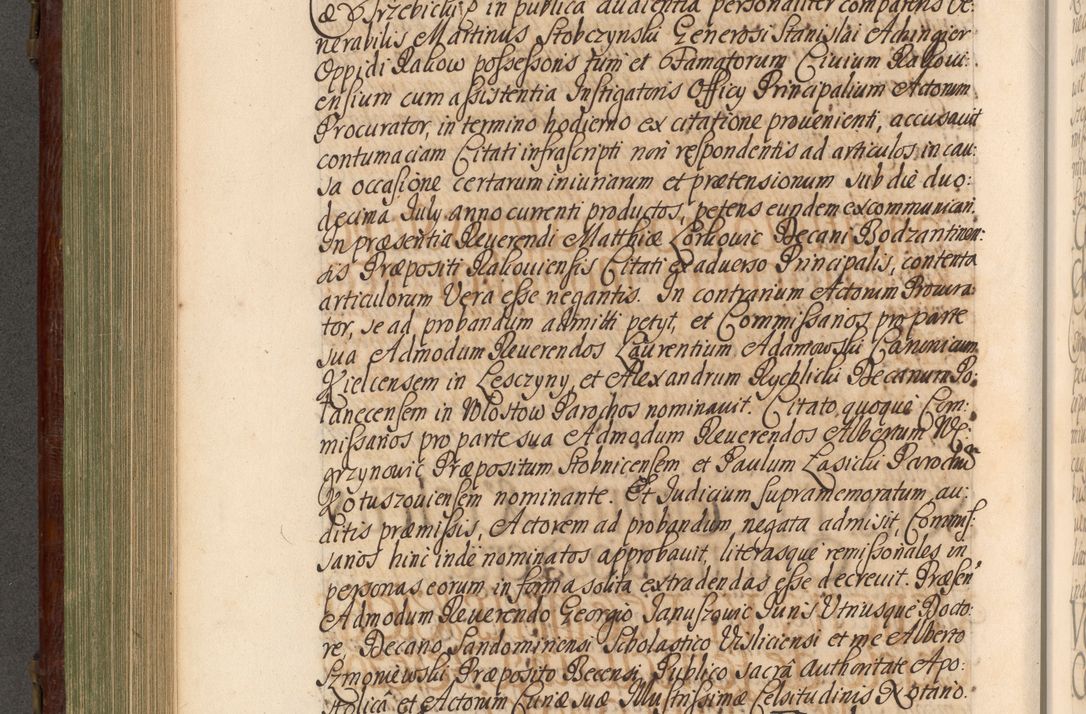 & Trzebicky in publica audientia personaliter comparens Ve:
nerabilis Martinus Stobczynski Generosi Stanislai Achingier
Oppidi Rakow possessoris tum et Famatorum Civium Rakowi:
ensium cum assistentia Instigatoris Officy Principalium Actorum
Procurator, in termino hodierno ex citatione prouenienti, accusauit
contumaciam Citati infrascripti non respondentis ad articulos in cau:
sa occasione certarum iniuriarum et prætensionum sub die duo:
decima July anno currenti productos, petens eundem excommunicari.
In præsentia Reuerendi Matthiæ Corkowic Decani Bodzantinen:
sis Præpositi Rakouiensis Citati ex aduerso Principalis, contenta
articulorum Vera esse negantis. In contrarium Actorum Procura:
tor, se ad probandum admitti petyt, et Commissarios pro parte
sua Admodum Reuerendos Laurentium Adamowski Canonicum
Kielcensem in Lesczyny, et Alexandrum Rychlicki Decanum Po:
lanecensem in Włostow Parochos nominauit. Citato quoque Com:
missarios pro parte sua Admodum Reuerendos Albertum We:
grzynowic Præpositum Stobnicensem et Paulum Łasicki Parochū
Kotuszouiensem nominante. Et Judicium supramemoratum, au:
ditis præmissis, Actorem ad probandum negata admisit, Commis:
sarios hinc inde nominatos approbauit, literasque remissoriales in
personas eorum in forma solita extradendas esse decreuit. Præsen
Admodum Reuerendo Georgio Januszowic Juris Utriusque Docto:
re, Decano Sandomiriensi Scholastico Visliciensi et me Alberto
Szmoniewski Præposito Becensi, Publico sacrâ Authoritate Apo:
stolicâ et Actorum Curiæ suæ Illustrissimæ Celsitudinis Notario.